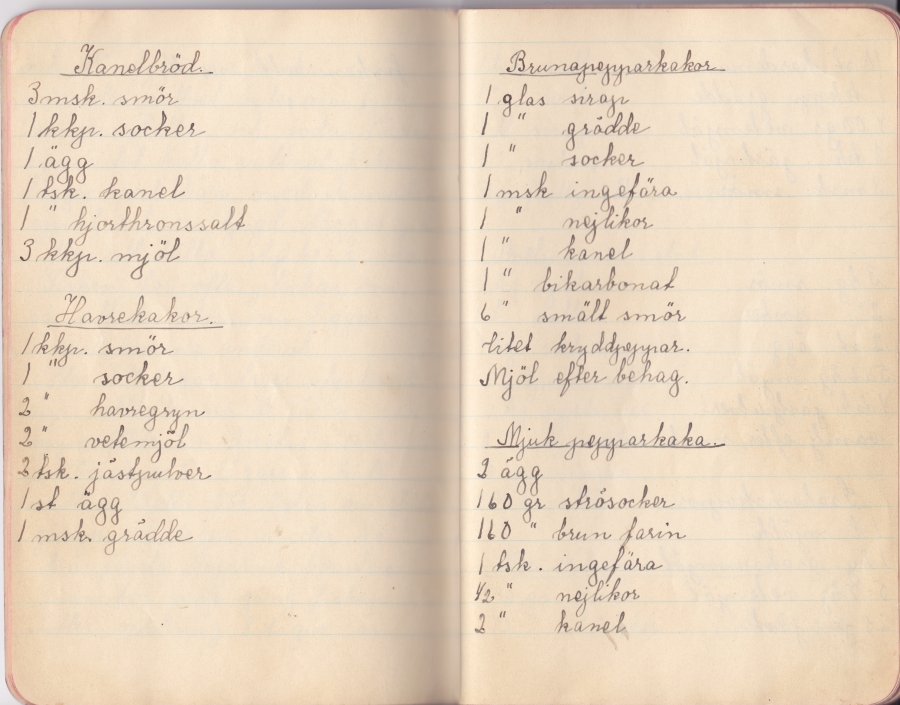 Kanelbröd.
3 msk. smör
1 kkp. socker
1 ägg
1 tsk. kanel
1 " hjorthronssalt
3 kkp. mjöl
Havrekakor.
1 kkp. smör
1 " socker
2 " havregryn
2 " vetemjöl
2 tsk. jästpulver
1 st ägg
1 msk. grädde
Brunapepparkakor
1 glas sirap
1 " grädde
1 " socker
1 msk ingefära
1 " nejlikor
1 " kanel
1 " bikarbonat
6 " smält smör
litet kryddpeppar.
Mjöl efter behag.
Mjuk pepparkaka.
2 ägg
160 gr strösocker
160 " brun farin
1 tsk. ingefära
1/2 " nejlikor
2 " kanel